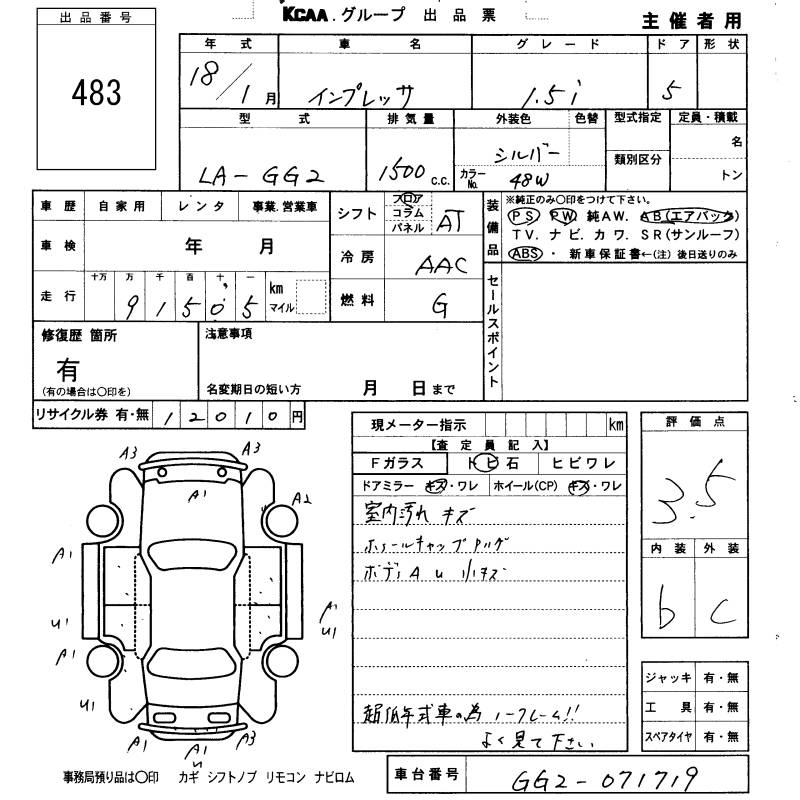 KCAA.グループ 出品票
主催者用
出品番号
483
年式 車名 グレード ドア 形状
18/1月 インプレッサ 1.5i 5
型式 排気量 外装色 色替 型式指定 定員・積載
LA-GG2 1500c.c. シルバー 名
カラーNo. 48W 類別区分 トン
車歴 自家用 レンタ 事業.営業車
車検 年 月
走行 十万 万 千 百 十 一 km マイル
9 1 5 0 5
シフト フロア コラム パネル AT
冷房 AAC
燃料 G
装備品
※純正のみ○印をつけて下さい。
PS PW 純AW. AB(エアバッグ)
TV. ナビ. カワ. SR(サンルーフ)
ABS ・ 新車保証書←(注) 後日送りのみ
セールスポイント
修復歴 箇所
有
(有の場合は○印を)
注意事項
名変期日の短い方 月 日まで
リサイクル券 有・無 12010円
現メーター指示 km
【査定員記入】
Fガラス トビ石 ヒビワレ
ドアミラー キズ・ワレ ホイール(CP) キズ・ワレ
室内汚れ キズ
ホイールキャップ
ボディ A U 小キズ
超低年式車の為 ノークレーム!!
よく見て下さい
評価点
3.5
内装 外装
b c
ジャッキ 有・無
工具 有・無
スペアタイヤ 有・無
A3 A3
A1
A2
A1
U1
A1
A1
U1
U1
A1 A1 A3
U
事務局預り品は○印 カギ シフトノブ リモコン ナビロム
車台番号 GG2-071719